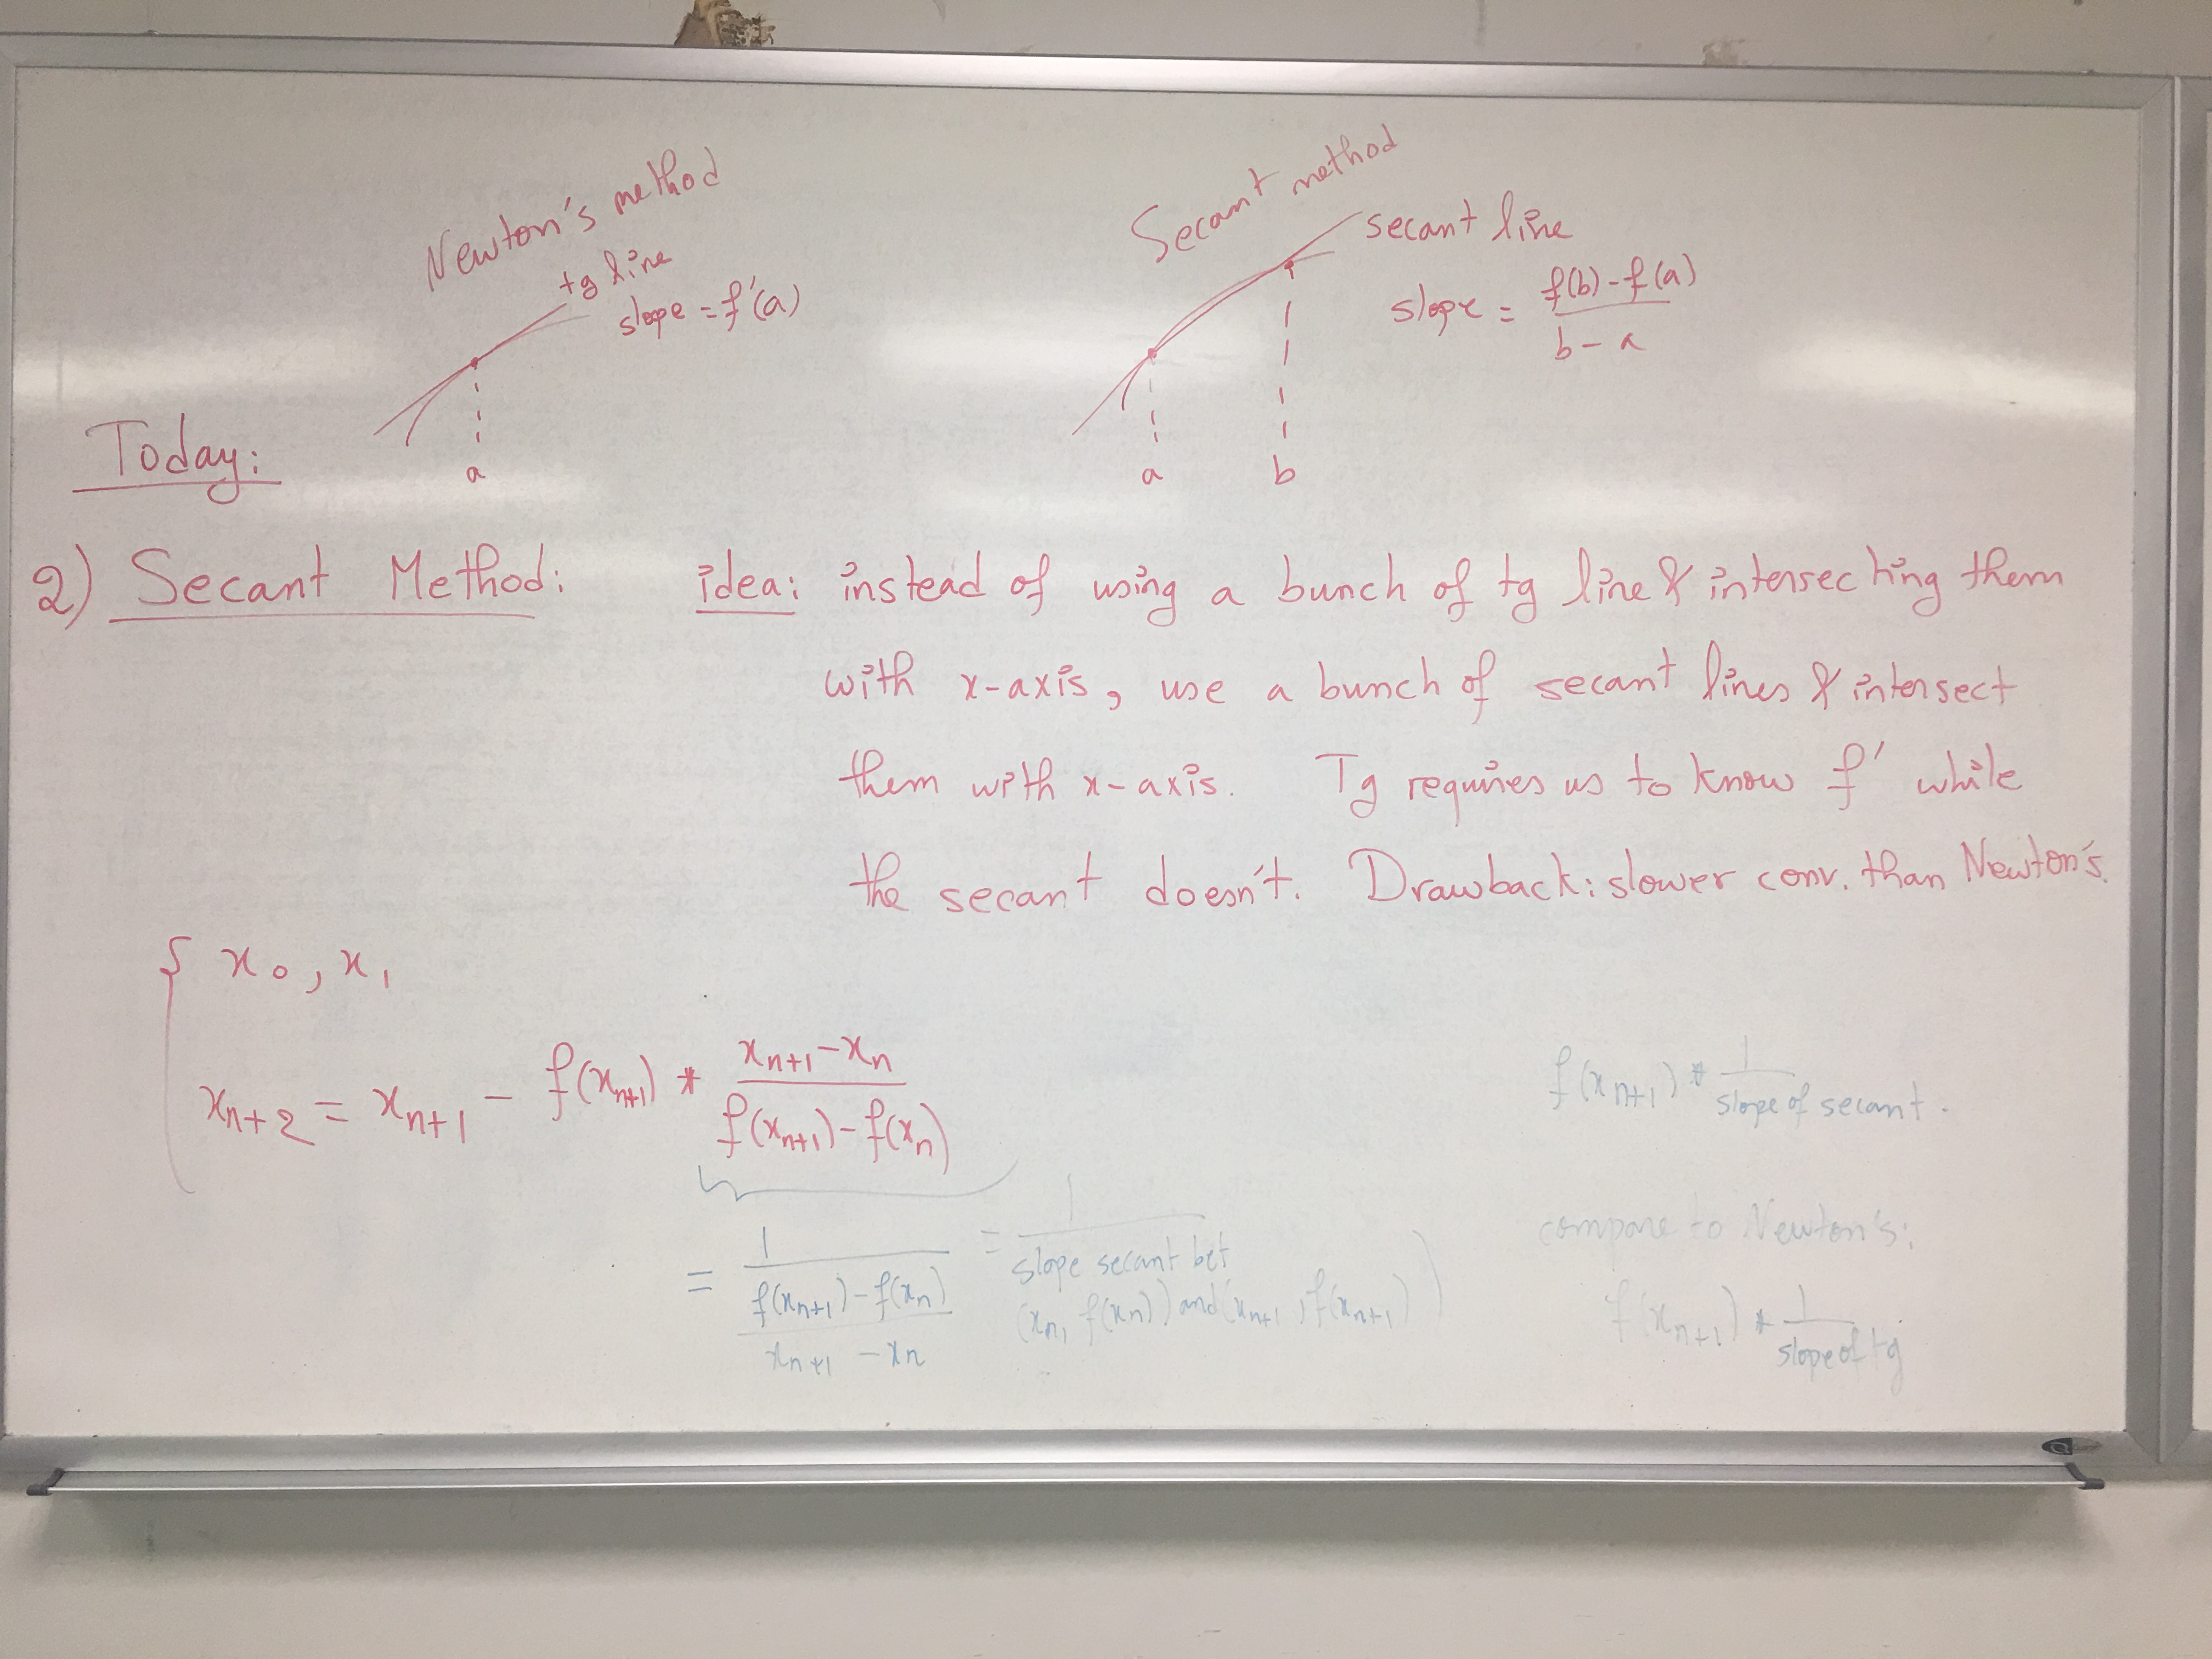 Newton's method
tg line
slope = f'(a)
a
Secant method
secant line
slope = f(b)-f(a) / b-a
a b
Today:
2) Secant Method: idea: instead of using a bunch of tg line & intersecting them
with x-axis, use a bunch of secant lines & intersect
them with x-axis. Tg requires us to know f' while
the secant doesn't. Drawback: slower conv. than Newton's.
{ x₀, x₁
xₙ₊₂ = xₙ₊₁ - f(xₙ₊₁) * xₙ₊₁-xₙ / f(xₙ₊₁)-f(xₙ)
= 1 / f(xₙ₊₁)-f(xₙ) / xₙ₊₁ - xₙ = 1 / slope secant bet
(xₙ, f(xₙ)) and (xₙ₊₁, f(xₙ₊₁))
f(xₙ₊₁) * 1 / slope of secant.
compare to Newton's:
f(xₙ₊₁) * 1 / slope of tg